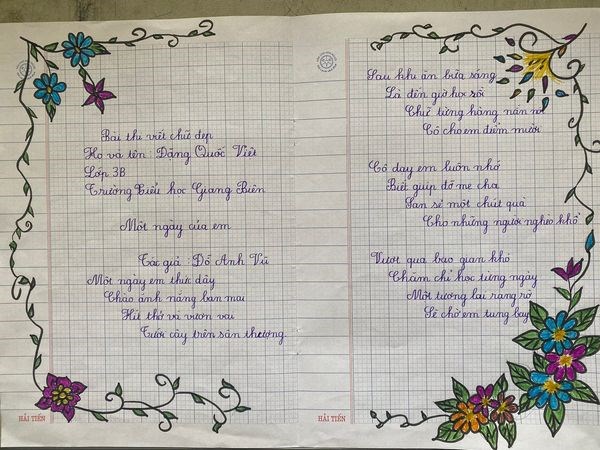 Bài thi viết chữ đẹp
Họ và tên : Đặng Quốc Việt
Lớp 3B
Trường Tiểu học Giang Biên
Một ngày của em
Tác giả : Đỗ Anh Vũ
Một ngày em thức dậy
Chào ánh nắng ban mai
Hít thở và vươn vai
Tưới cây trên sân thượng.
HẢI TIẾN
Sau khi ăn bữa sáng
Là đến giờ học sôi
Chữ từng hàng nắn nót
Cô cho em điểm mười
Cô dạy em luôn nhớ
Biết giúp đỡ mẹ cha
San sẻ một chút quà
Cho những người nghèo khổ
Vượt qua bao gian khó
Chăm chỉ học từng ngày
Một tương lai rạng rỡ
Sẽ chờ em tung bay
HẢI TIẾN